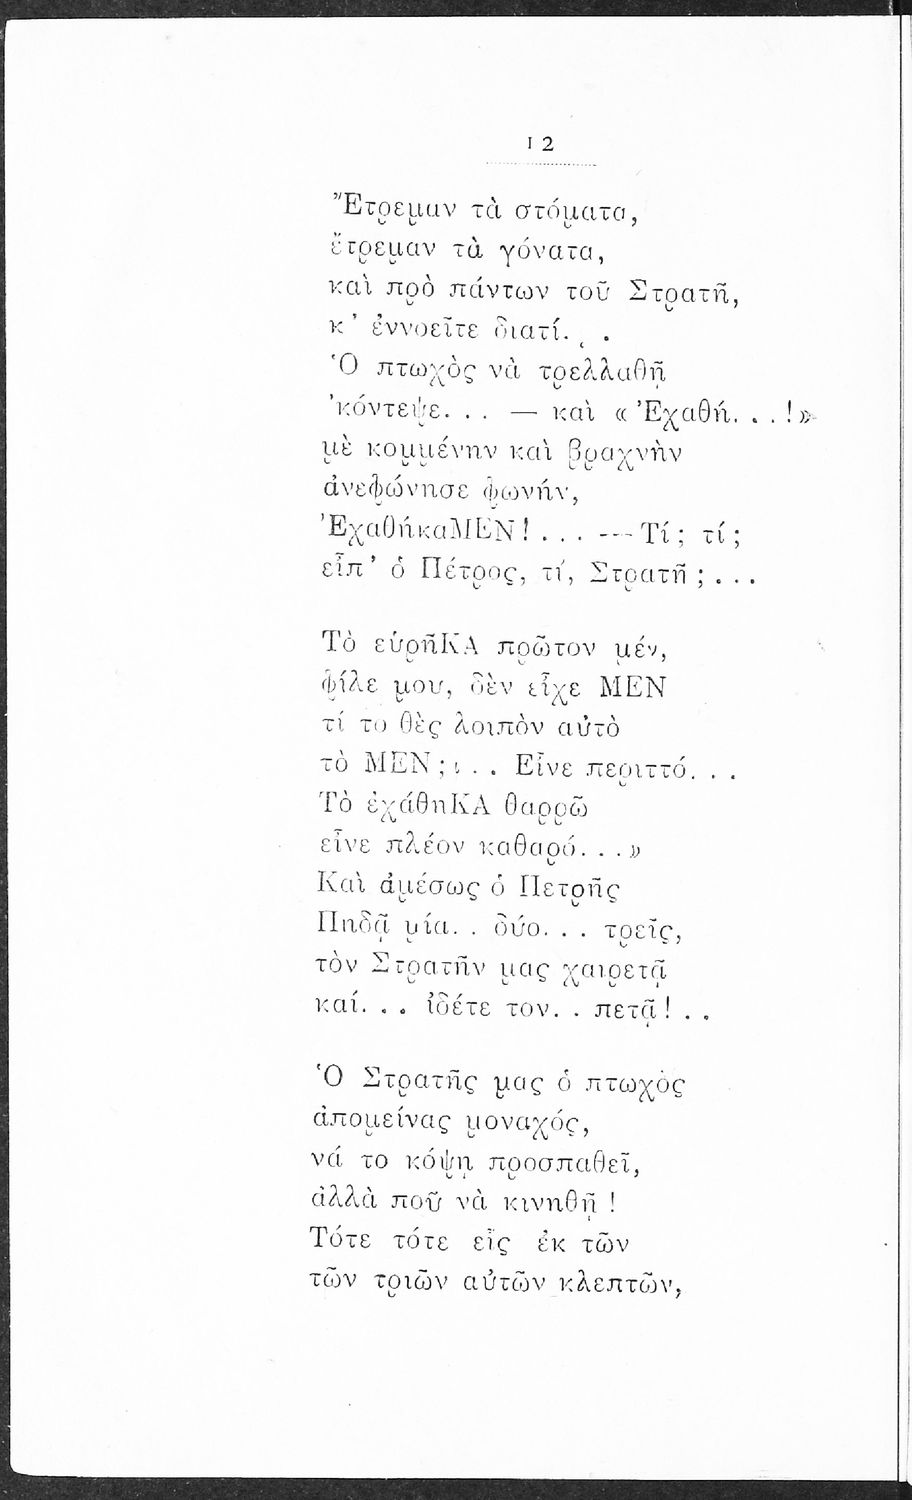 12
Ἔτρεμαν τὰ στόματα,
ἔτρεμαν τὰ γόνατα,
καὶ πρὸ πάντων τοῦ Στρατῆ,
κ' ἐννοεῖτε διατί. . .
Ὁ πτωχὸς νὰ τρελλαθῇ
'κόντεψε. . . — καὶ « Ἐχαθή. . . !»
μὲ κομμένην καὶ βραχνὴν
ἀνεφώνησε φωνήν,
ἘχαθήκαΜΕΝ ! . . . — Τί ; τί ;
εἶπ' ὁ Πέτρος, τί, Στρατῆ ; . . .
Τὸ εὑρῆΚΑ πρῶτον μέν,
φίλε μου, δὲν εἶχε ΜΕΝ
τί το θὲς λοιπὸν αὐτὸ
τὸ ΜΕΝ ; . . . Εἶνε περιττό. . .
Τὸ ἐχάθηΚΑ θαρρῶ
εἶνε πλέον καθαρό. . . »
Καὶ ἀμέσως ὁ Πετρῆς
Πηδᾷ μία. . δύο. . . τρεῖς,
τὸν Στρατῆν μας χαιρετᾷ
καί. . . ἰδέτε τον. . πετᾷ ! . .
Ὁ Στρατῆς μας ὁ πτωχὸς
ἀπομείνας μοναχός,
νά το κόψῃ προσπαθεῖ,
ἀλλὰ ποῦ νὰ κινηθῇ !
Τότε τότε εἷς ἐκ τῶν
τῶν τριῶν αὐτῶν κλεπτῶν,